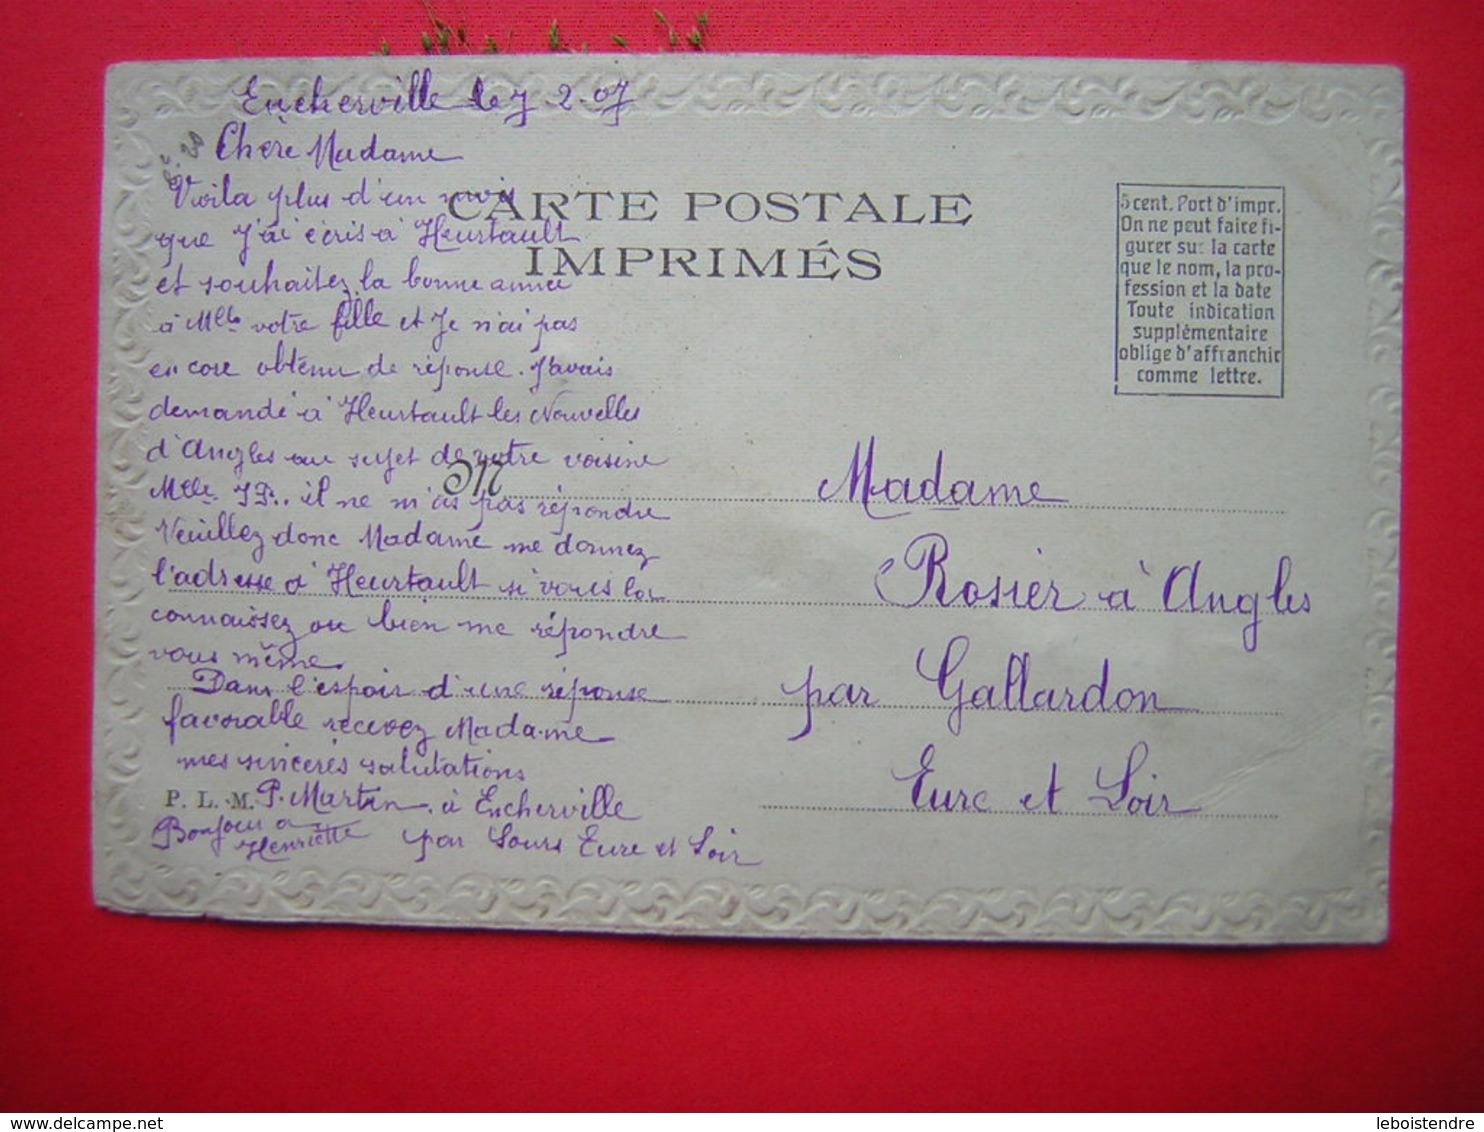 Encherville le 7 2-07
Chère Madame
Voila plus d'un mois
que J'ai écris à Heurtault
et souhaitez la bonne année
à Mlle votre fille et Je n'ai pas
encore obtenu de réponse. J'avais
demandé à Heurtault les Nouvelles
d'Angles au sujet de votre voisine
Mlle JP.. il ne m'as pas répondre
Veuillez donc Madame me donnez
l'adresse à Heurtault si vous la
connaissez ou bien me répondre
vous même
Dans l'espoir d'une réponse
favorable recevez Madame
mes sincères salutations
P. Martin à Encherville
par Sours Eure et Loir
Bonjour a
Henriette
CARTE POSTALE
IMPRIMÉS
5 cent. Port d'impr.
On ne peut faire fi-
gurer sur la carte
que le nom, la pro-
fession et la date
Toute indication
supplémentaire
oblige d'affranchir
comme lettre.
M
Madame
Rosier à Angles
par Gallardon
Eure et Loir
P. L. M.
www.delcampe.net
leboistendre